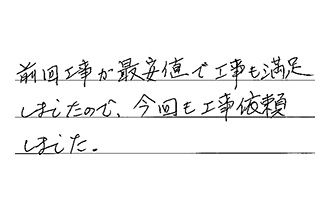 前回工事が最安値で工事も満足
しましたので、今回も工事依頼
しました。